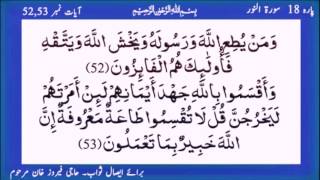 پارہ 18 سورۃ النور بِسْمِ اللهِ الرَّحْمٰنِ الرَّحِيْمِ آیات نمبر 52,53
وَمَنْ يُطِعِ اللَّهَ وَرَسُولَهُ وَيَخْشَ اللَّهَ وَيَتَّقْهِ
فَأُولَٰئِكَ هُمُ الْفَائِزُونَ (52)
وَأَقْسَمُوا بِاللَّهِ جَهْدَ أَيْمَانِهِمْ لَئِنْ أَمَرْتَهُمْ
لَيَخْرُجُنَّ قُلْ لَا تُقْسِمُوا طَاعَةٌ مَعْرُوفَةٌ إِنَّ
اللَّهَ خَبِيرٌ بِمَا تَعْمَلُونَ (53)
برائے ایصال ثواب۔ حاجی فیروز خان مرحوم